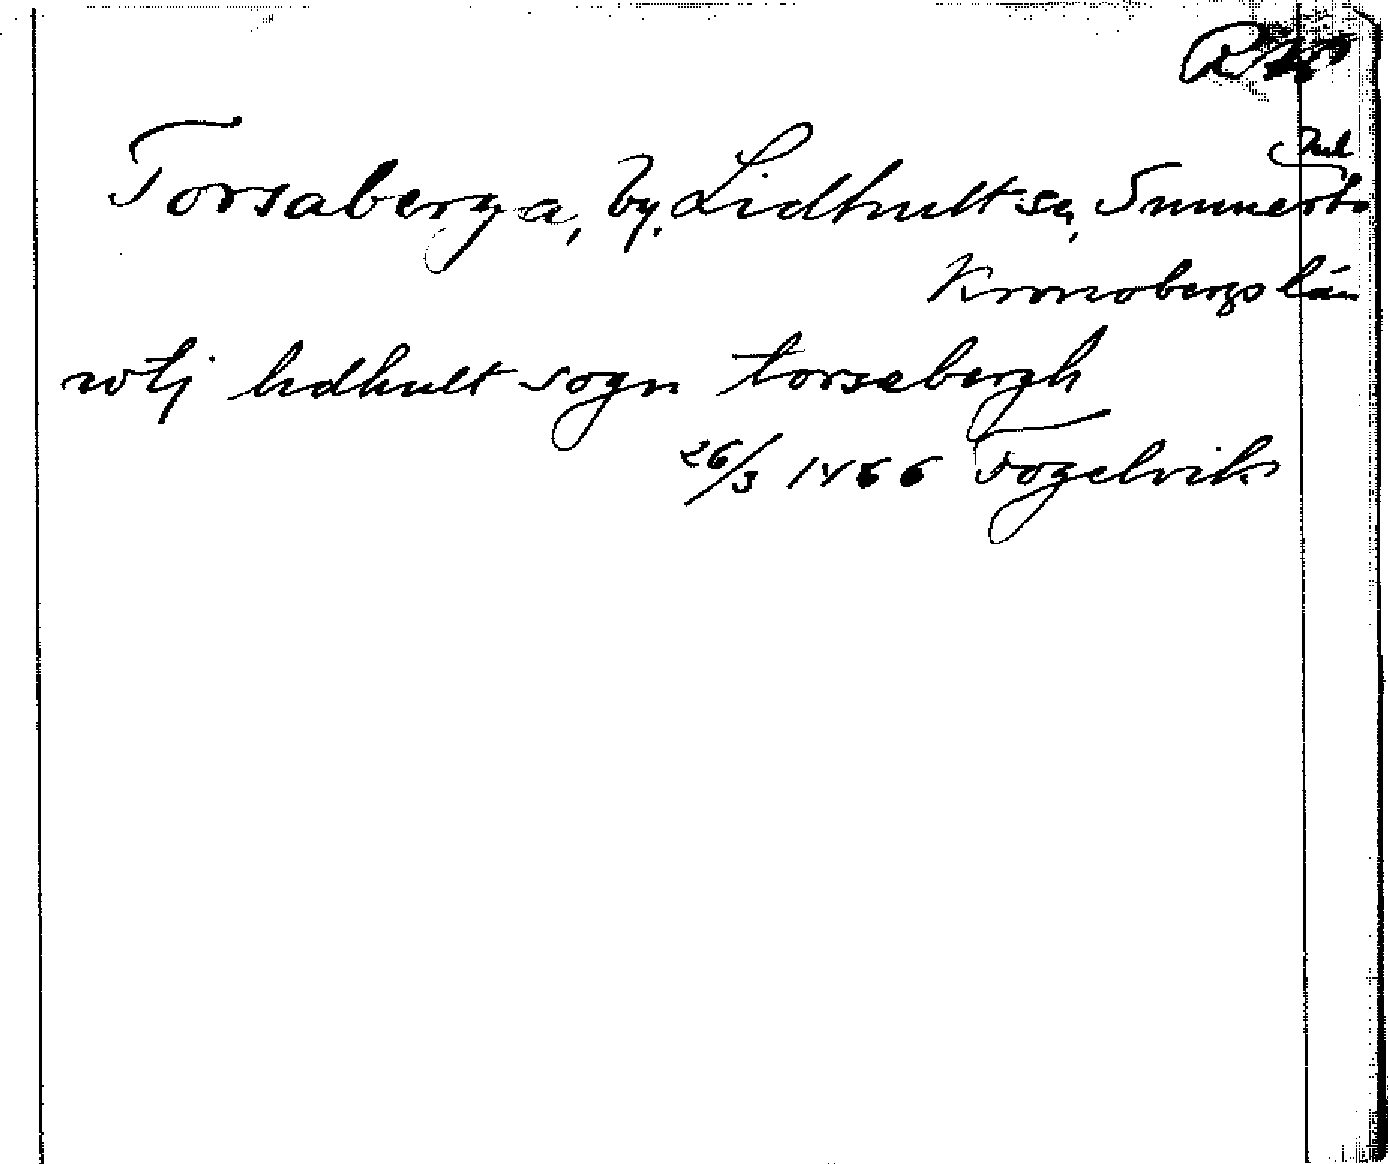 Torsaberga, by, Lidhult sn, Sunnerbo
Kronobergs län
lidhult sogn torsebergh
26/3 1466 Fogelvik